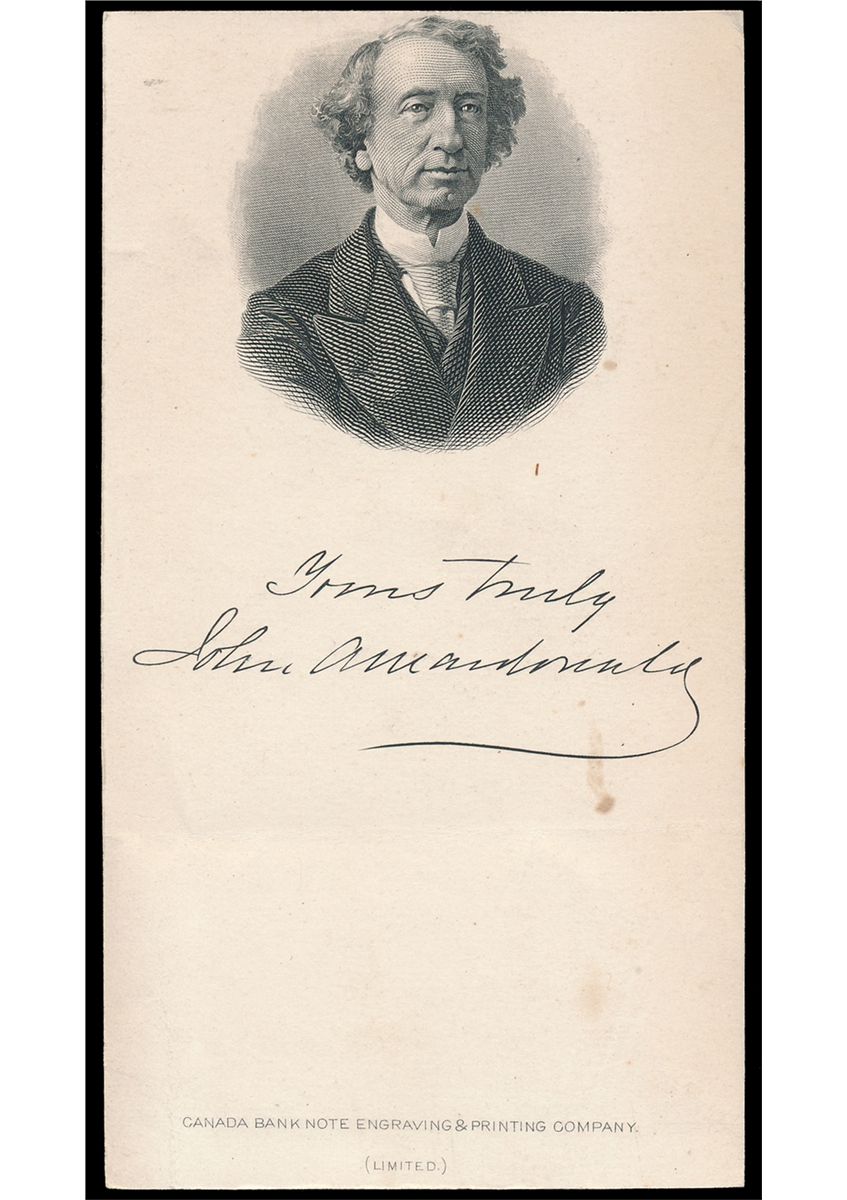 Yours truly
John A Macdonald
CANADA BANK NOTE ENGRAVING & PRINTING COMPANY.
(LIMITED.)